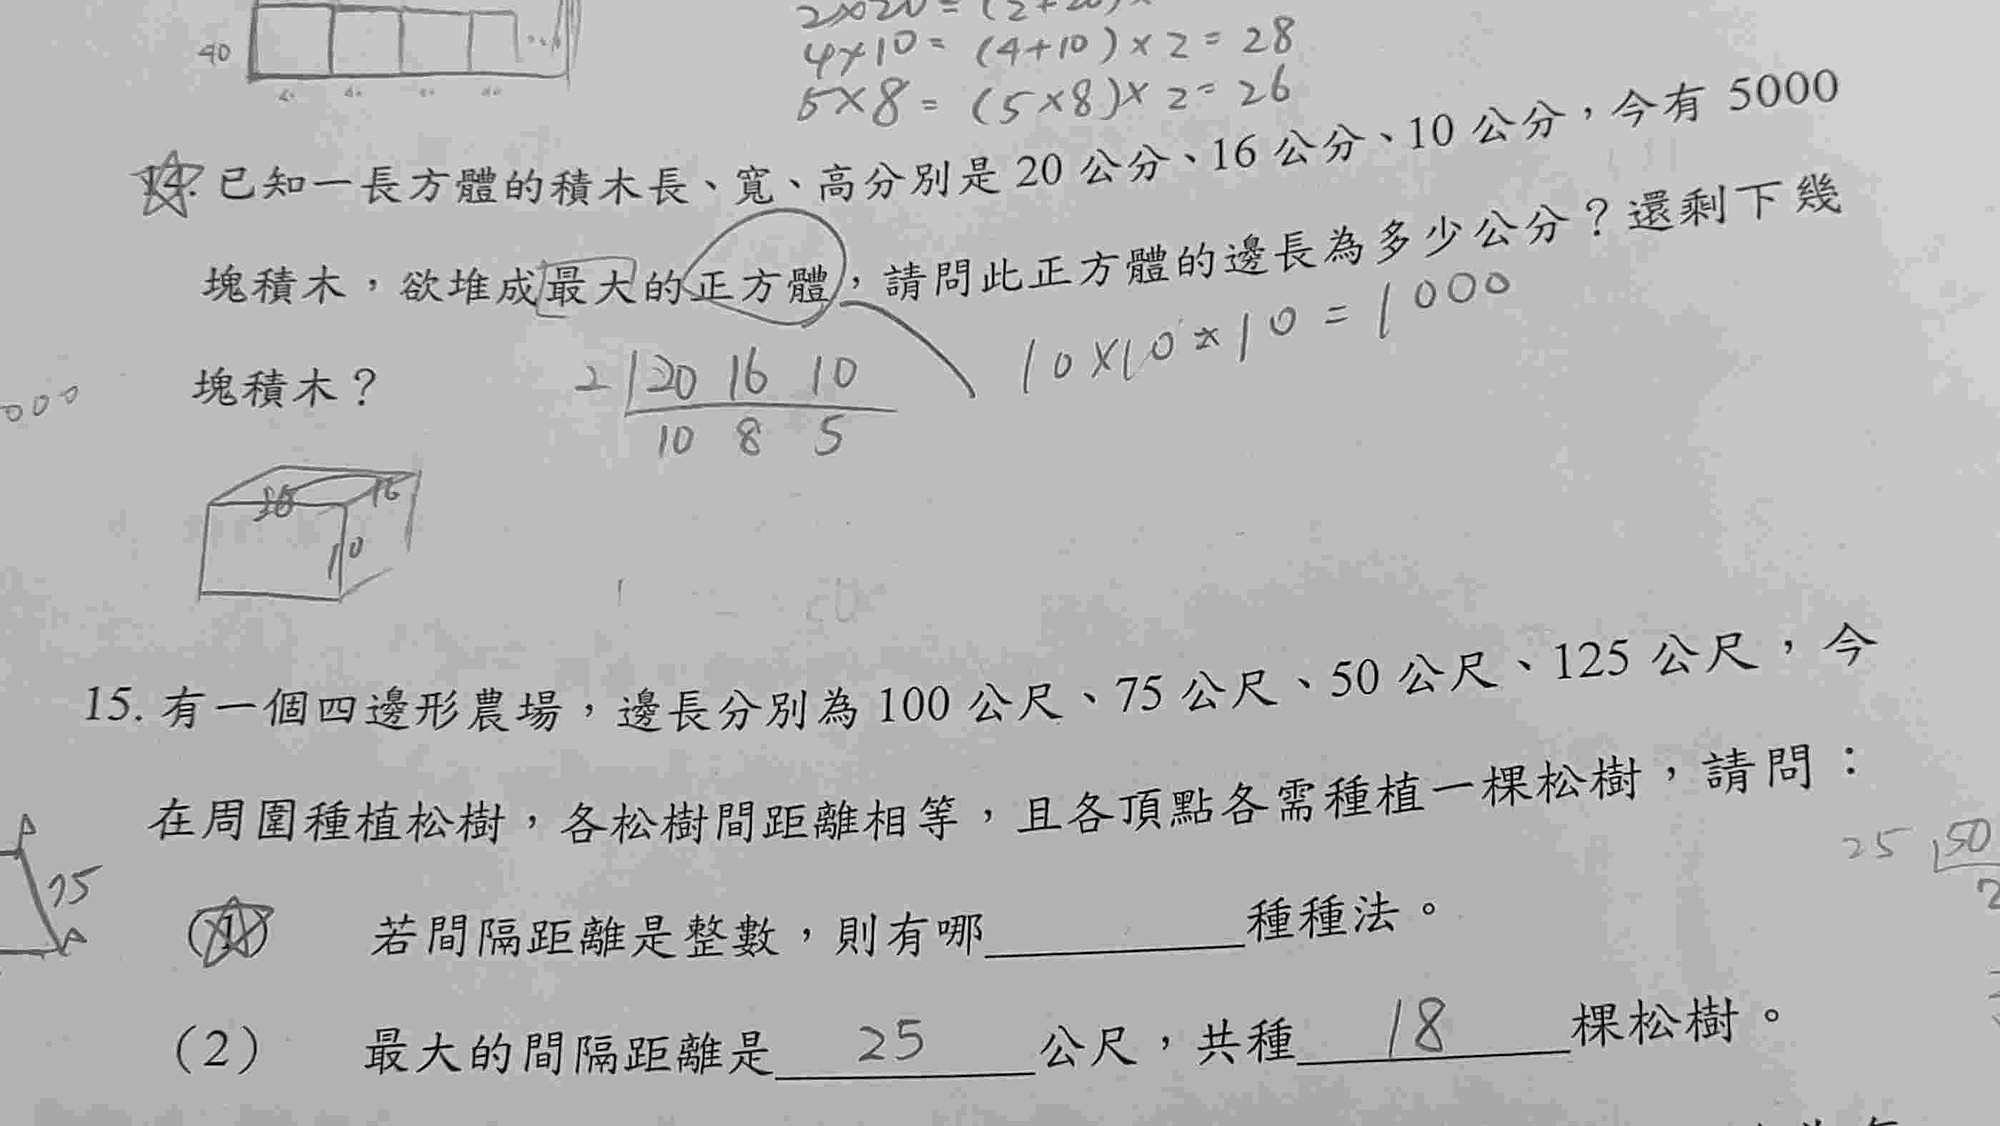 40
4×10 = (4+10)×2 = 28
5×8 = (5×8)×2 = 26
14. 已知一長方體的積木長、寬、高分別是 20 公分、16 公分、10 公分，今有 5000
塊積木，欲堆成最大的正方體，請問此正方體的邊長為多少公分？還剩下幾
塊積木？
10×10×10=1000
000
2 20 16 10
10 8 5
16
10
15. 有一個四邊形農場，邊長分別為 100 公尺、75 公尺、50 公尺、125 公尺，今
在周圍種植松樹，各松樹間距離相等，且各頂點各需種植一棵松樹，請問：
25 50
2
75
(1) 若間隔距離是整數，則有哪______種種法。
(2) 最大的間隔距離是 25 公尺，共種 18 棵松樹。